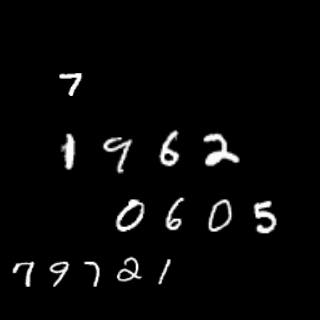 7
1962
0605
79721